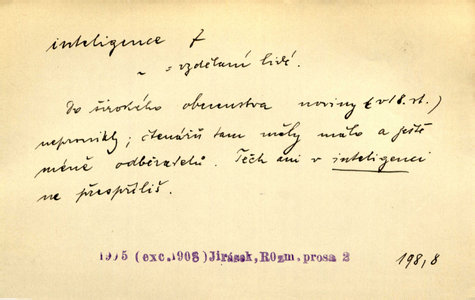 inteligence f
~ = vzdělaní lidé.
Do širokého obecenstva noviny (v 18. st.)
nepronikly; čtenářů tam měly málo a ještě
méně odběratelů. Těch ani v inteligenci
ne přespříliš.
1915 (exc. 1908) Jirásek, Rozm. prosa 2 198,8